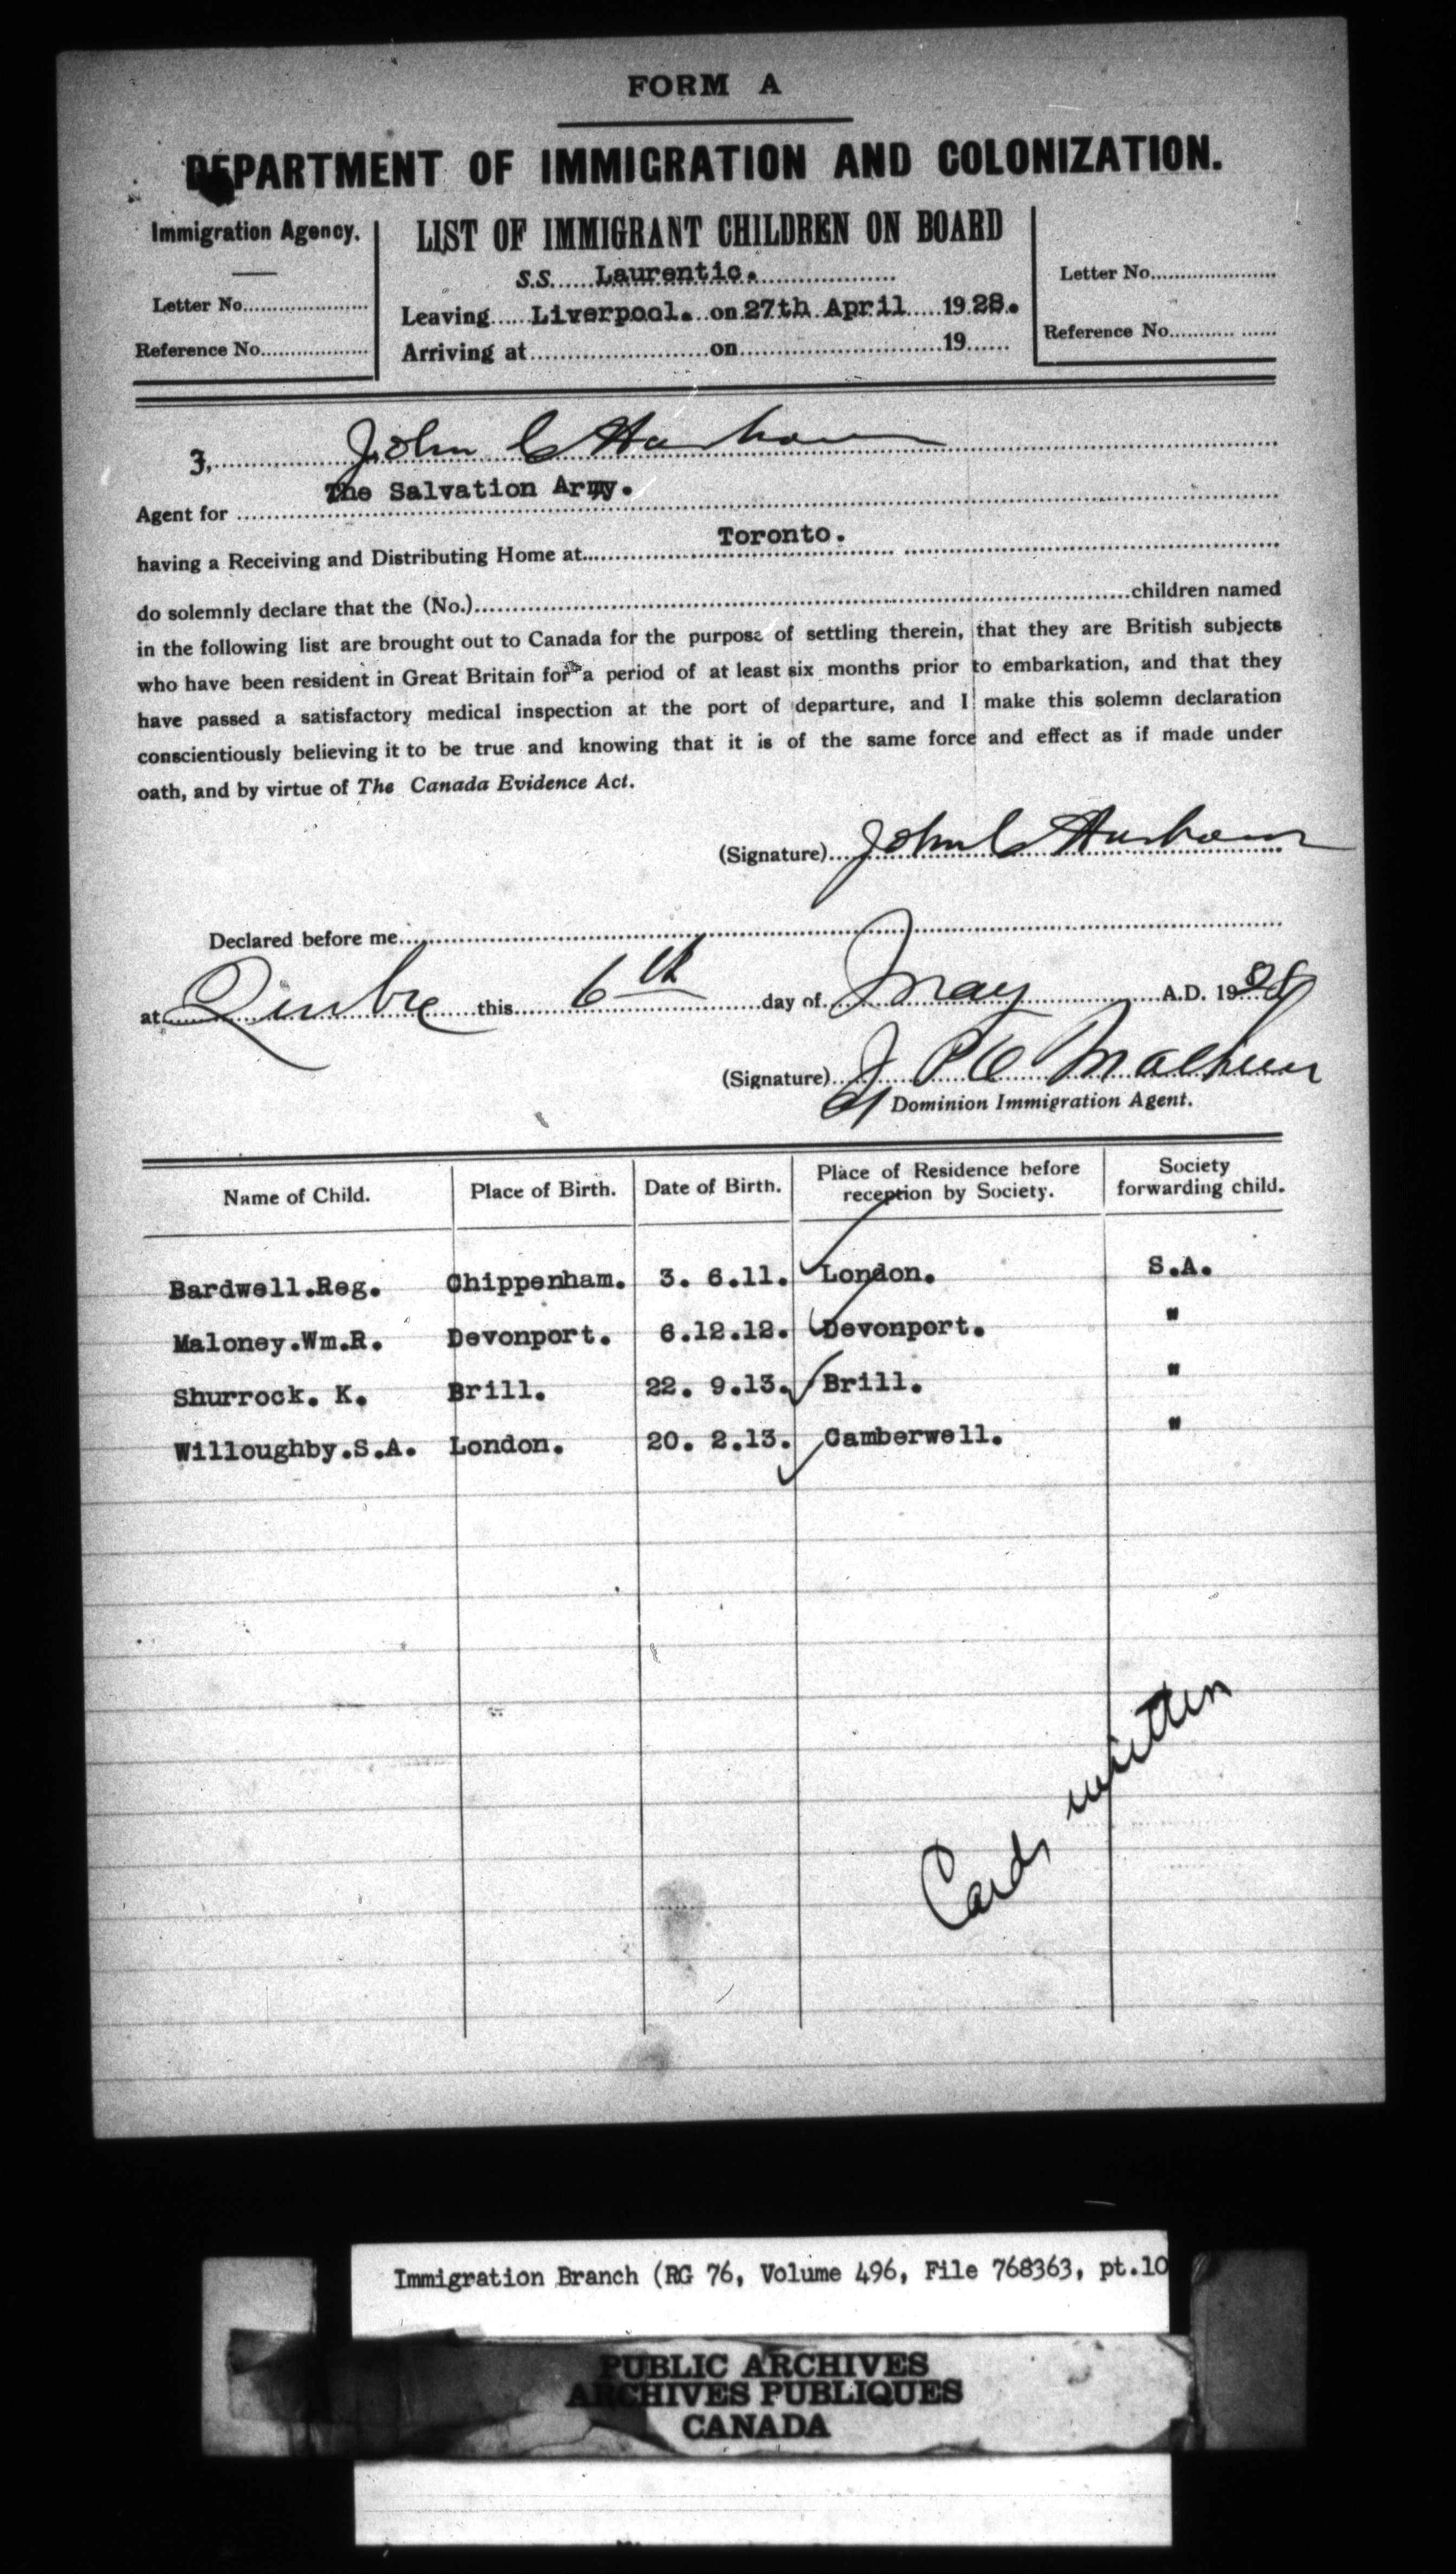 FORM A
DEPARTMENT OF IMMIGRATION AND COLONIZATION.
Immigration Agency.
Letter No.
Reference No.
LIST OF IMMIGRANT CHILDREN ON BOARD
S.S. Laurentic.
Leaving Liverpool. on 27th April 1928.
Arriving at on 19
Letter No.
Reference No.
John C
Agent for The Salvation Army.
having a Receiving and Distributing Home at Toronto.
do solemnly declare that the (No.) children named
in the following list are brought out to Canada for the purpose of settling therein, that they are British subjects
who have been resident in Great Britain for a period of at least six months prior to embarkation, and that they
have passed a satisfactory medical inspection at the port of departure, and I make this solemn declaration
conscientiously believing it to be true and knowing that it is of the same force and effect as if made under
oath, and by virtue of The Canada Evidence Act.
(Signature) John C
Declared before me
at this 6th day of May A.D. 1928
(Signature) J P C
Dominion Immigration Agent.
Name of Child. Place of Birth. Date of Birth. Place of Residence before reception by Society. Society forwarding child.
Bardwell.Reg. Chippenham. 3. 6.11. London. S.A.
Maloney.Wm.R. Devonport. 6.12.12. Devonport. "
Shurrock. K. Brill. 22. 9.13. Brill. "
Willoughby.S.A. London. 20. 2.13. Camberwell. "
Cards written
Immigration Branch (RG 76, Volume 496, File 768363, pt.10
PUBLIC ARCHIVES
ARCHIVES PUBLIQUES
CANADA